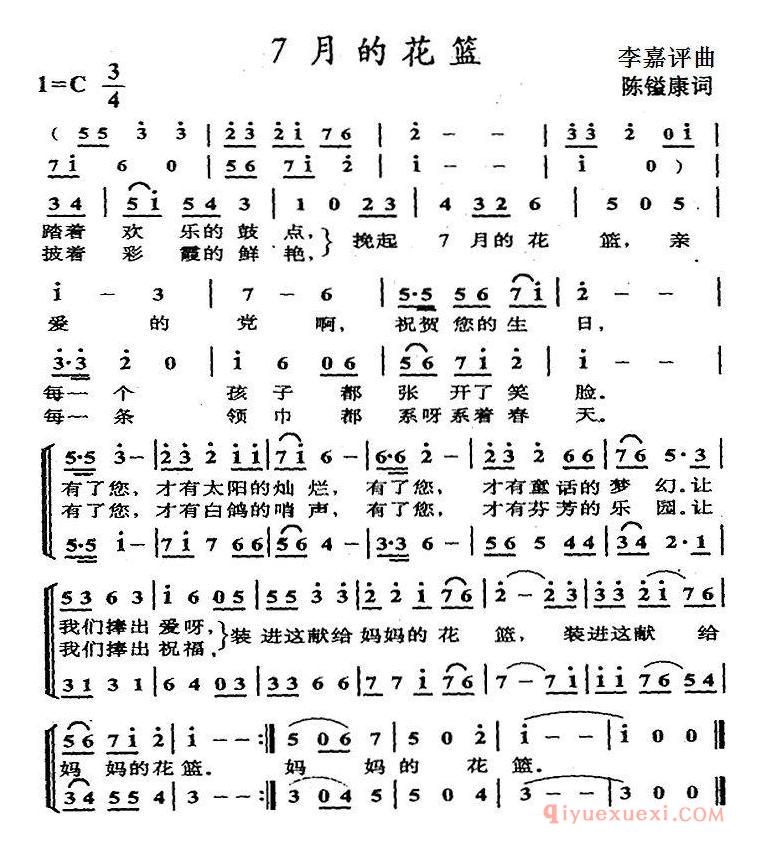 7 月 的 花 篮
李嘉评曲
1=C 3/4
陈镒康词
( 55 3 3 | 23 21 76 | 2 - - | 33 2 01 |
71 6 0 | 56 71 2 | 1 - - | 1 0 )
34 | 51 54 3 | 1 0 23 | 4 32 6 | 5 0 5
踏着 欢 乐的 鼓 点,} 挽起 7 月的 花 篮, 亲
披着 彩 霞的 鲜 艳,
1 - 3 | 7 - 6 | 5·5 56 71 | 2 - - |
爱 的 党 啊, 祝贺 您的 生 日,
3·3 2 0 | 1 6 06 | 56 71 2 | 1 - - |
每一 个 孩 子 都 张 开了 笑 脸.
每一 条 领 巾 都 系呀 系着 春 天.
5·5 3- | 23 2 11 | 71 6 - | 6·6 2 - | 23 2 66 | 76 5·3 |
有了 您, 才有 太阳的 灿 烂, 有了 您, 才有 童话的 梦 幻.让
有了 您, 才有 白鸽的 哨 声, 有了 您, 才有 芬芳的 乐 园.让
5·5 1- | 71 7 66 | 56 4 - | 3·3 6 - | 56 5 44 | 34 2·1 |
53 6 3 | 1 6 05 | 55 3 3 | 2 2 1 76 | 2 - 23 | 33 21 76 |
我们 捧出 爱 呀,} 装 进这 献给 妈妈 的 花 篮, 装 进这献 给
我们 捧出 祝 福,
31 3 1 | 6 4 03 | 33 6 6 | 7 7 1 76 | 7 - 71 | 11 76 54 |
56 71 2 | 1 - - :‖ 5 06 7 | 5 0 2 | 1 - - | 1 0 0 ‖
妈 妈的 花 篮. 妈 妈 的 花 篮.
34 55 4 | 3 - - :‖ 3 04 5 | 5 0 4 | 3 - - | 3 0 0 ‖
qiyuexuexi.com